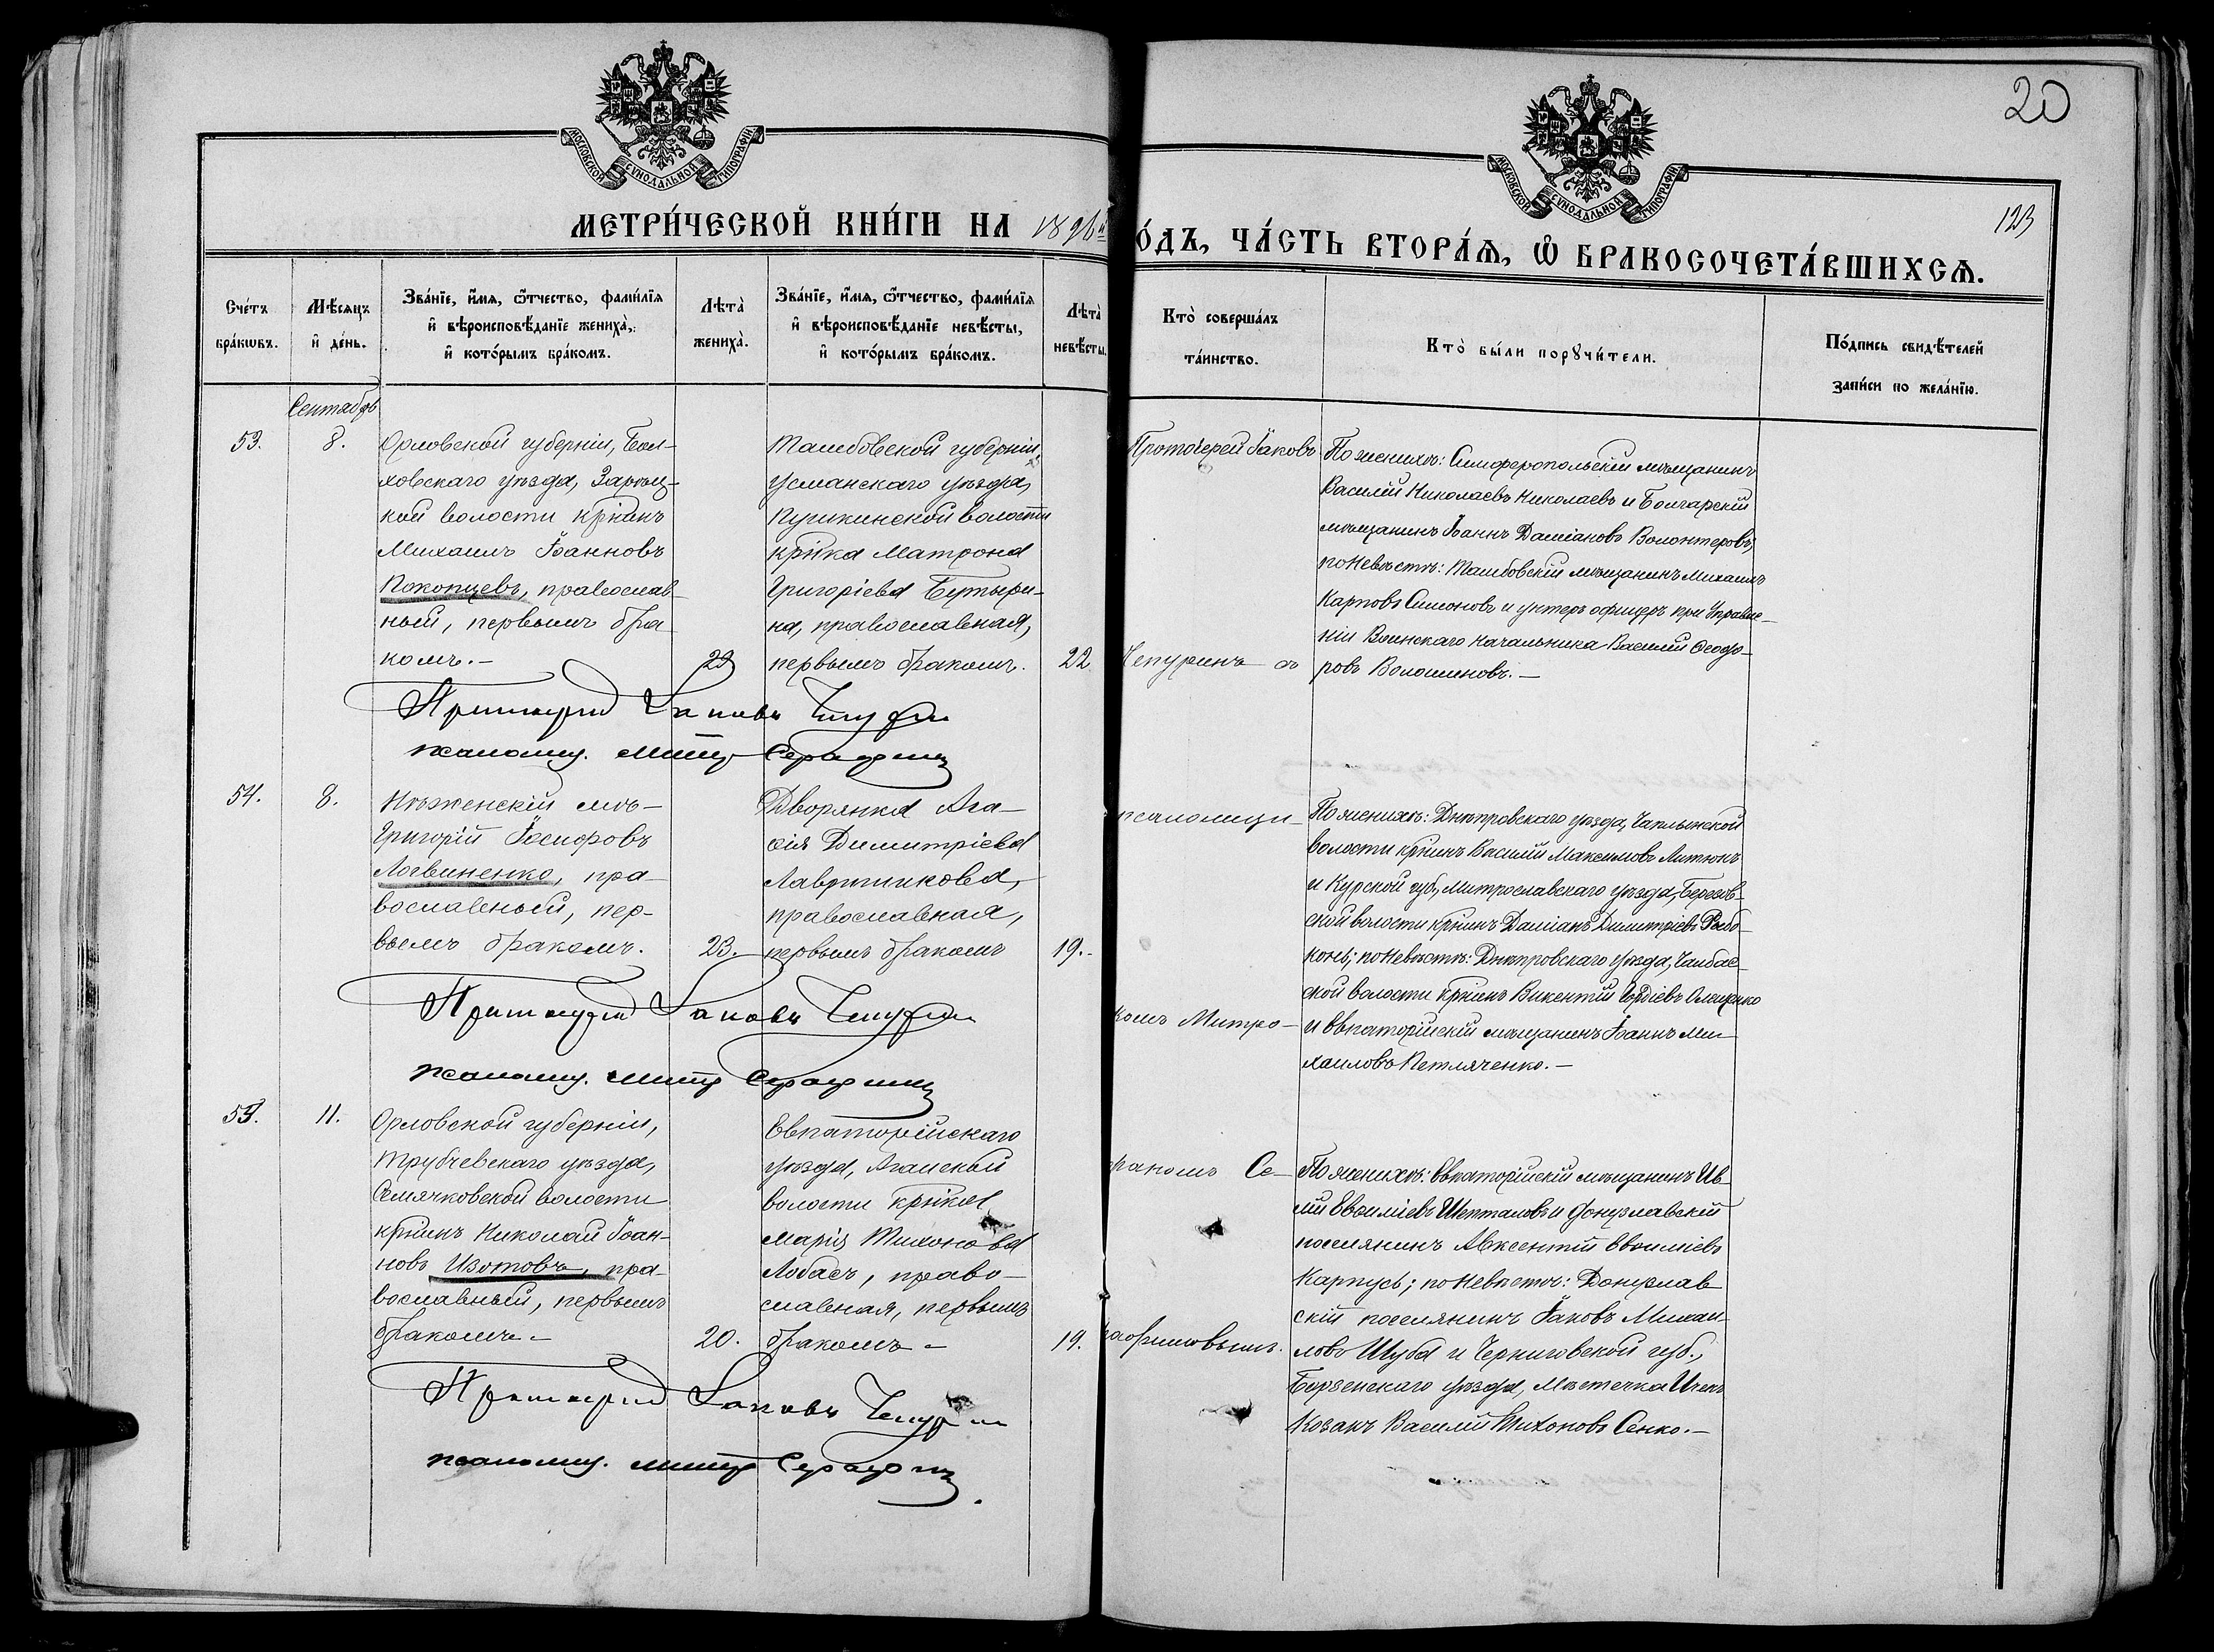 20
123
МОСКОВСКОЙ СѴНОДАЛЬНОЙ ТИПОГРАФІИ
МОСКОВСКОЙ СѴНОДАЛЬНОЙ ТИПОГРАФІИ
МЕТРИ́ЧЕСКОЙ КНИ́ГИ НА 1896й
О́ДЪ, ЧА́СТЬ ВТОРА́Ѧ, Ѽ БРАКОСОЧЕТА́ВШИХСѦ.
Сче́тъ
бра́кѡвъ.
Мѣ́сѧцъ
и҆ де́нь.
Зва́нїе, и҆́мѧ, ѻ҆́тчество, фами́лїѧ
и҆ вѣроисповѣ́данїе жениха̀,
и҆ кото́рымъ бра́комъ.
Лѣта̀
жениха̀.
Зва́нїе, и҆́мѧ, ѻ҆́тчество, фами́лїѧ
и҆ вѣроисповѣ́данїе невѣ́сты,
и҆ кото́рымъ бра́комъ.
Лѣта̀
невѣ́сты.
Кто̀ соверша́лъ
та́инство.
Кто̀ бы́ли порꙋчи́тели.
По́дпись свидѣ́телей
за́писи по жела́нїю.
Сентябрь
53.
8.
Орловской губерніи, Бол-
ховскаго уѣзда, Зарѣц-
кой волости кр҃нинъ
Михаилъ Іоанновъ
Покопцевъ, православ-
ный, первымъ бра
комъ.-
23
Тамбовской губерніи,
Усманскаго уѣзда,
Пушкинской волости
кр҃нка Матрона
Григоріева Бутыри-
на, православная,
первымъ бракомъ.
22.
Протоіерей Іаковъ
Чепуринъ съ
По женихѣ: Симферопольскій мѣщанинъ
Василій Николаевъ Николаевъ и Болгарскій
мѣщанинъ Іоаннъ Даміановъ Волонтеровъ;
по невѣстѣ: Тамбовскій мѣщанинъ Михаилъ
Карповъ Симоновъ и унтеръ офицеръ при Управле-
ніи Воинскаго Начальника Василій Ѳеодо-
ровъ Волошиновъ.-
Протоіерей Іаковъ Чепурин
псаломщ. Митр Серафим
54.
8.
Нѣженскій мѣ-
Григорій Іосифовъ
Логвиненко, пра-
вославный, пер-
вымъ бракомъ.
23.
Дворянка Ага-
ѳія Димитріева
Лавричникова,
православная,
первымъ бракомъ
19.-
псаломщи-
комъ Митро-
По женихѣ: Днѣпровскаго уѣзда, Чаплынской
волости кр҃нинъ Василій Максимовъ Литюкъ
и Курской губ., Митрославскаго уѣзда, Березов-
ской волости кр҃нинъ Даміанъ Димитріевъ Рябо-
конь; по невѣстѣ: Днѣпровскаго уѣзда, Чалбас-
ской волости кр҃нинъ Викентій Гордіевъ Олещенко
и Евпаторійскій мѣщанинъ Іоаннъ Ми-
хаиловъ Петляченко.-
Протоіерей Іаковъ Чепурин
псаломщ. Митр Серафим
55.
11.
Орловской губерніи,
Трубчевскаго уѣзда,
Семячковской волости
кр҃нинъ Николай Іоан-
новъ Изотовъ, пра-
вославный, первымъ
бракомъ-
20.
Евпаторійскаго
уѣзда, Агайской
волости кр҃нка
Марія Тихонова
Лобасъ, право-
славная, первымъ
бракомъ-
19.
фаномъ Се-
рафимовымъ.
По женихѣ: Евпаторійскій мѣщанинъ
Евѳиміевъ Шепталовъ и Донузлавскій
поселянинъ Авксентій Евѳиміевъ
Карпусь; по невѣстѣ: Донузлав
скій поселянинъ Іаковъ Михаи-
ловъ Шуба и Черниговской губ.,
Борзенскаго уѣзда, мѣстечка Ични
Козакъ Василій Тихоновъ Сенко.-
Протоіерей Іаковъ Чепурин
псаломщ. Митр Серафим